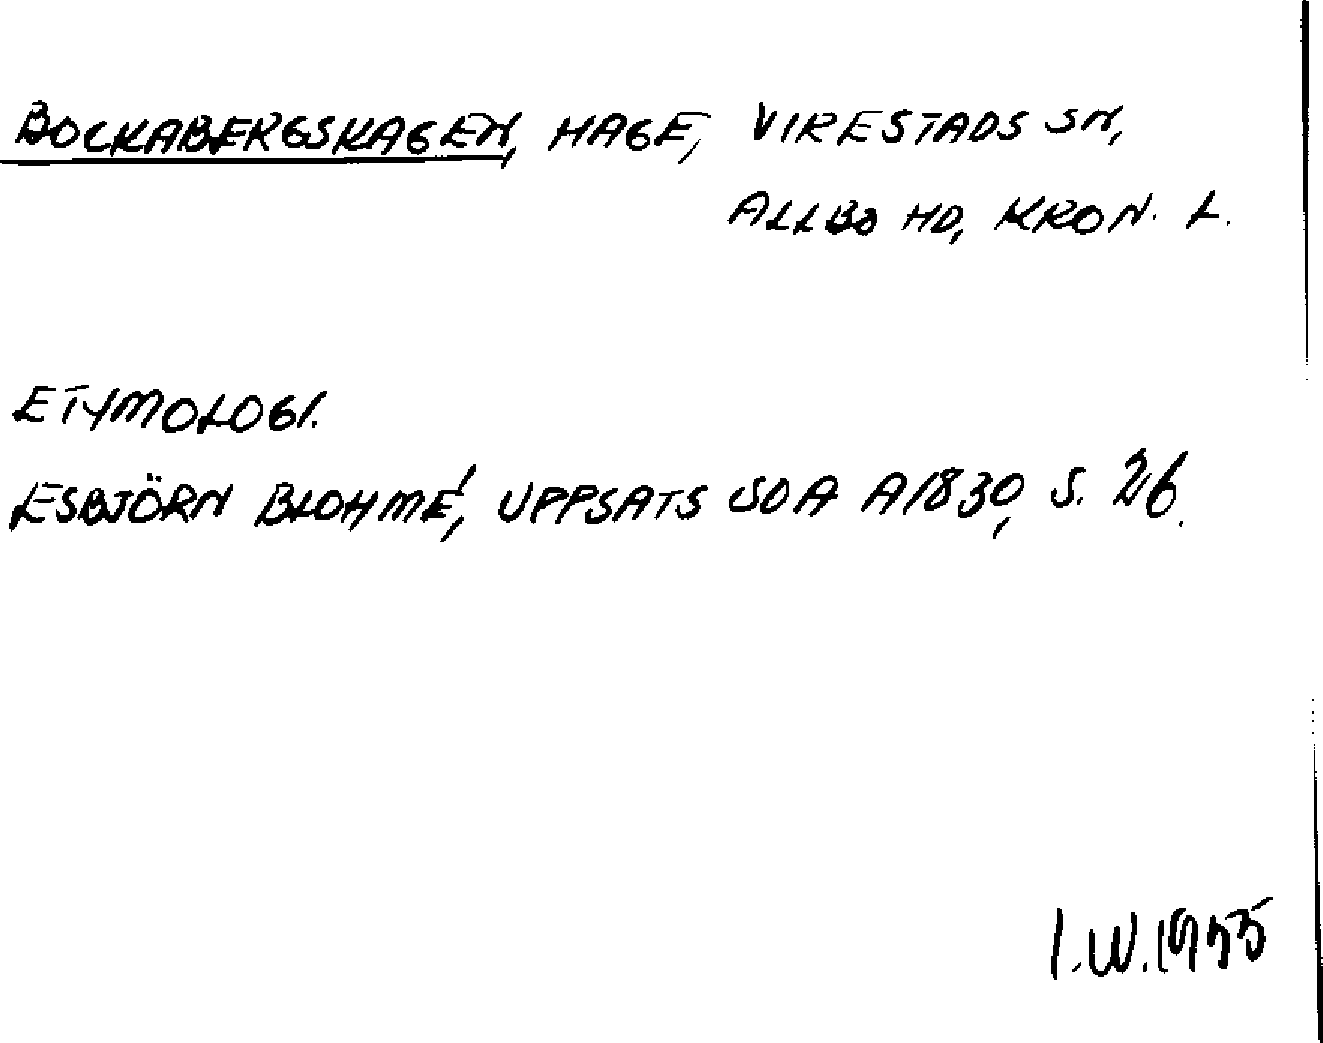 BOCKABERGSHAGEN, HAGE, VIRESTADS SN,
ALLBO HD, KRON. L.
ETYMOLOGI.
ESBJÖRN BLOHMÉ, UPPSATS SOA A1830, S. 26.
I.W.1955